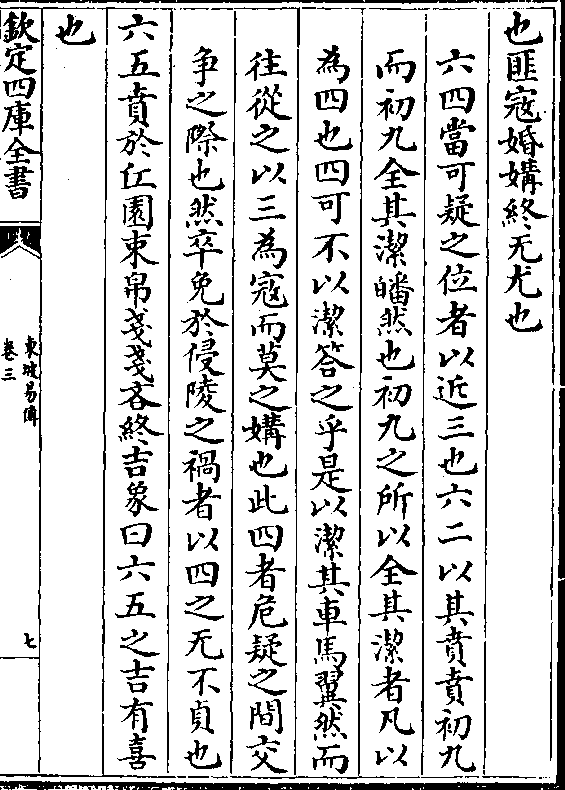 也匪寇婚媾終无尤也
六四當可疑之位者以近三也六二以其賁賁初九
而初九全其潔皤然也初九之所以全其潔者凡以
為四也四可不以潔答之乎是以潔其車馬翼然而
往從之以三為寇而莫之媾也此四者危疑之間交
争之際也然卒免於侵陵之禍者以四之无不貞也
六五賁於丘園束帛戔戔吝終吉象曰六五之吉有喜
也
欽定四庫全書
東坡易傳
卷三
七